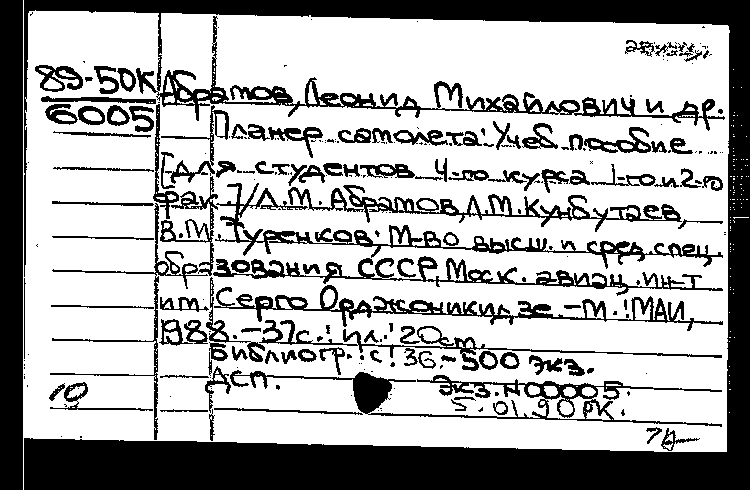 89-50К
6005
Абрамов, Леонид Михайлович и др.
Планер самолета: Учеб. пособие
[для студентов 4-го курса 1-го и 2-го
фак.] / Л.М. Абрамов, Л.М. Кунбутаев,
В.М. Туренков; М-во высш. и сред. спец.
образования СССР, Моск. авиац. ин-т
им. Серго Орджоникидзе. - М.: МАИ,
1988. - 37с.: ил.: 20см.
Библиогр.: с. 36. - 500 экз.
ДСП.
Экз. N00005.
10
5.01.90 РК.